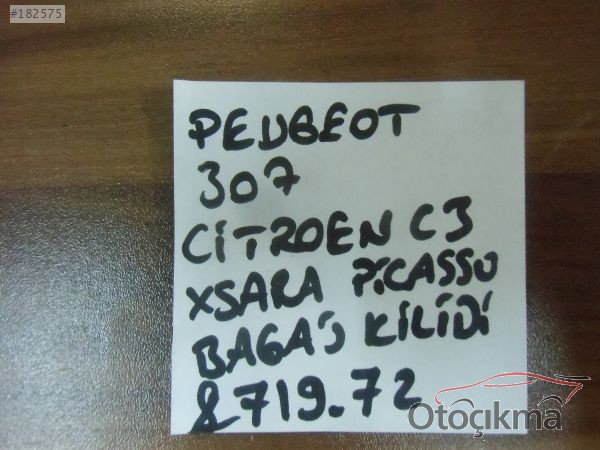 #182575
PEUGEOT
307
CİTROEN C3
XSARA PİCASSO
BAGAJ KİLİDİ
8719.72
Otoçıkma